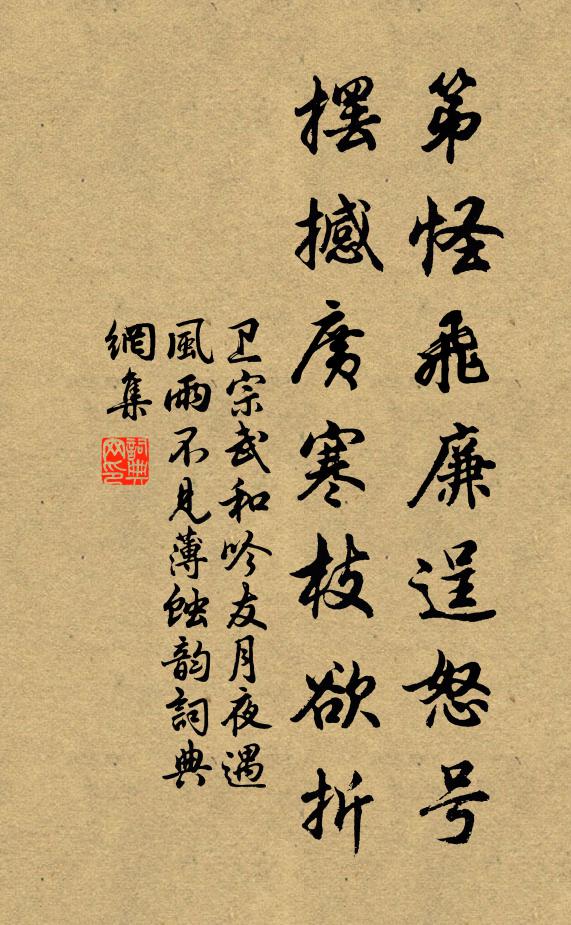 第怪飛廉逞怒号
摆撼廣寒枝欲折
卫宗武和吟友月夜遇
風雨不见薄蝕韵詞典
網集
詞典网印